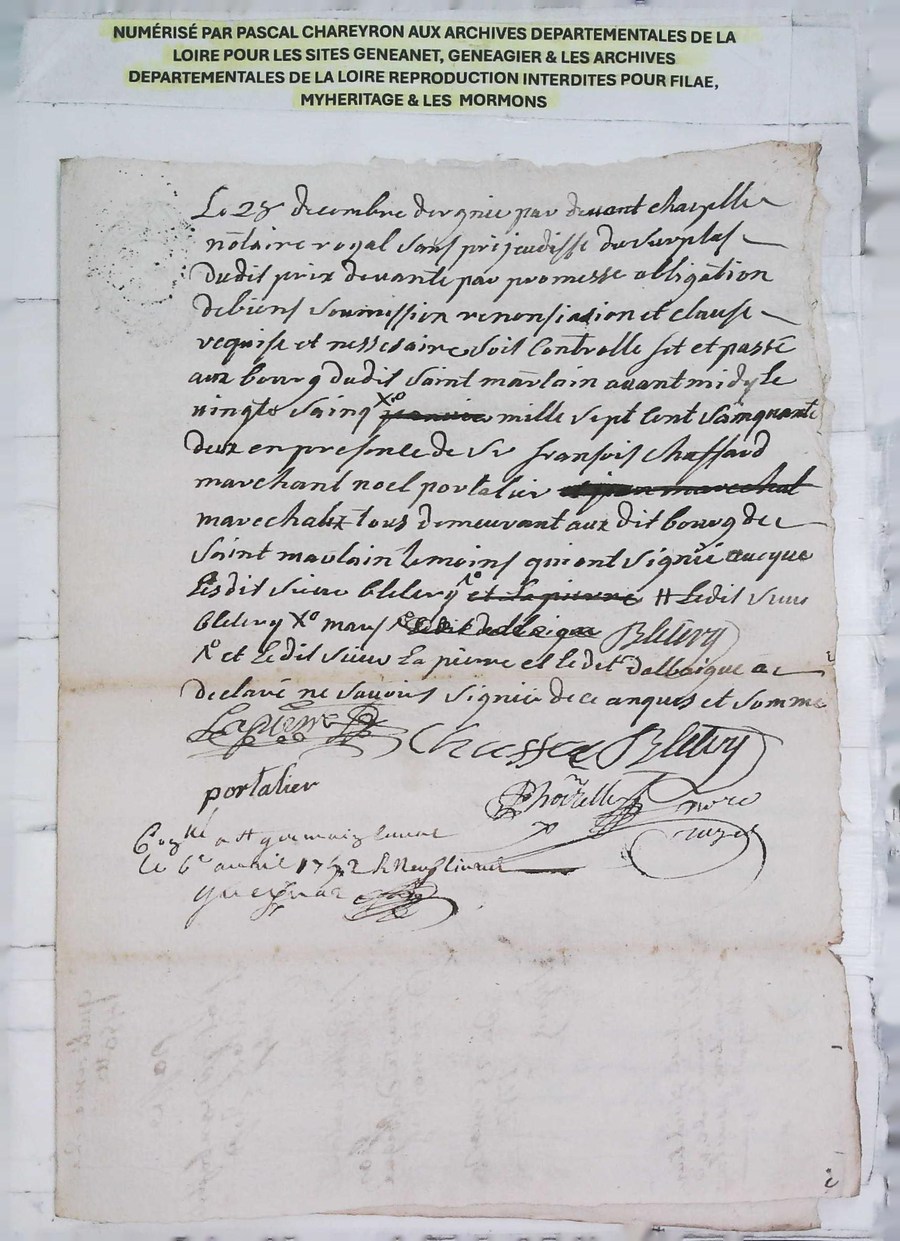 NUMÉRISÉ PAR PASCAL CHAREYRON AUX ARCHIVES DEPARTEMENTALES DE LA
LOIRE POUR LES SITES GENEANET, GENEAGIER & LES ARCHIVES
DEPARTEMENTALES DE LA LOIRE REPRODUCTION INTERDITES POUR FILAE,
MYHERITAGE & LES MORMONS
Le 28 decembre dergnie par devant chapelle
notaire royal sans prejeudisse du surplus
dudit prix devante par promesse obligation
de biens soumission renonsiasion et clause
requise et nessesaire soit Controlle fet et passé
aux bourg dudit saint maulain avant midy le
vingte sainq Xo mille sept cent sainquante
deux en presence de sr fransois chassard
marchant noel portalier
marechalx tous demeurant aux dit bourg de
saint maulain temoins qui ont signée avecque
Lesdit sieur Bletery # Ledit sieur
bletery Xo mars Bletery
et Ledit sieur La pierre et ledit dalbaigue a
declaré ne savoir signée de ce anquis et somme
Lapierre Chassar Bletery
portalier
nore
royal
a st germain laval
le 6e avril 1752 R neuf livres